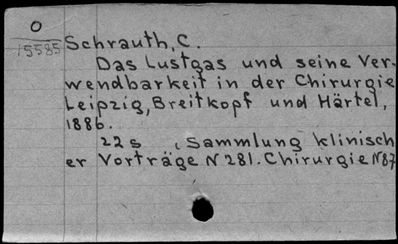 O
15585
Schrauth, C.
Das Lustgas und seine Ver-
wendbarkeit in der Chirurgie
Leipzig, Breitkopf und Härtel,
1886.
22 s , Sammlung klinisch
er Vorträge N 281. Chirurgie N 87